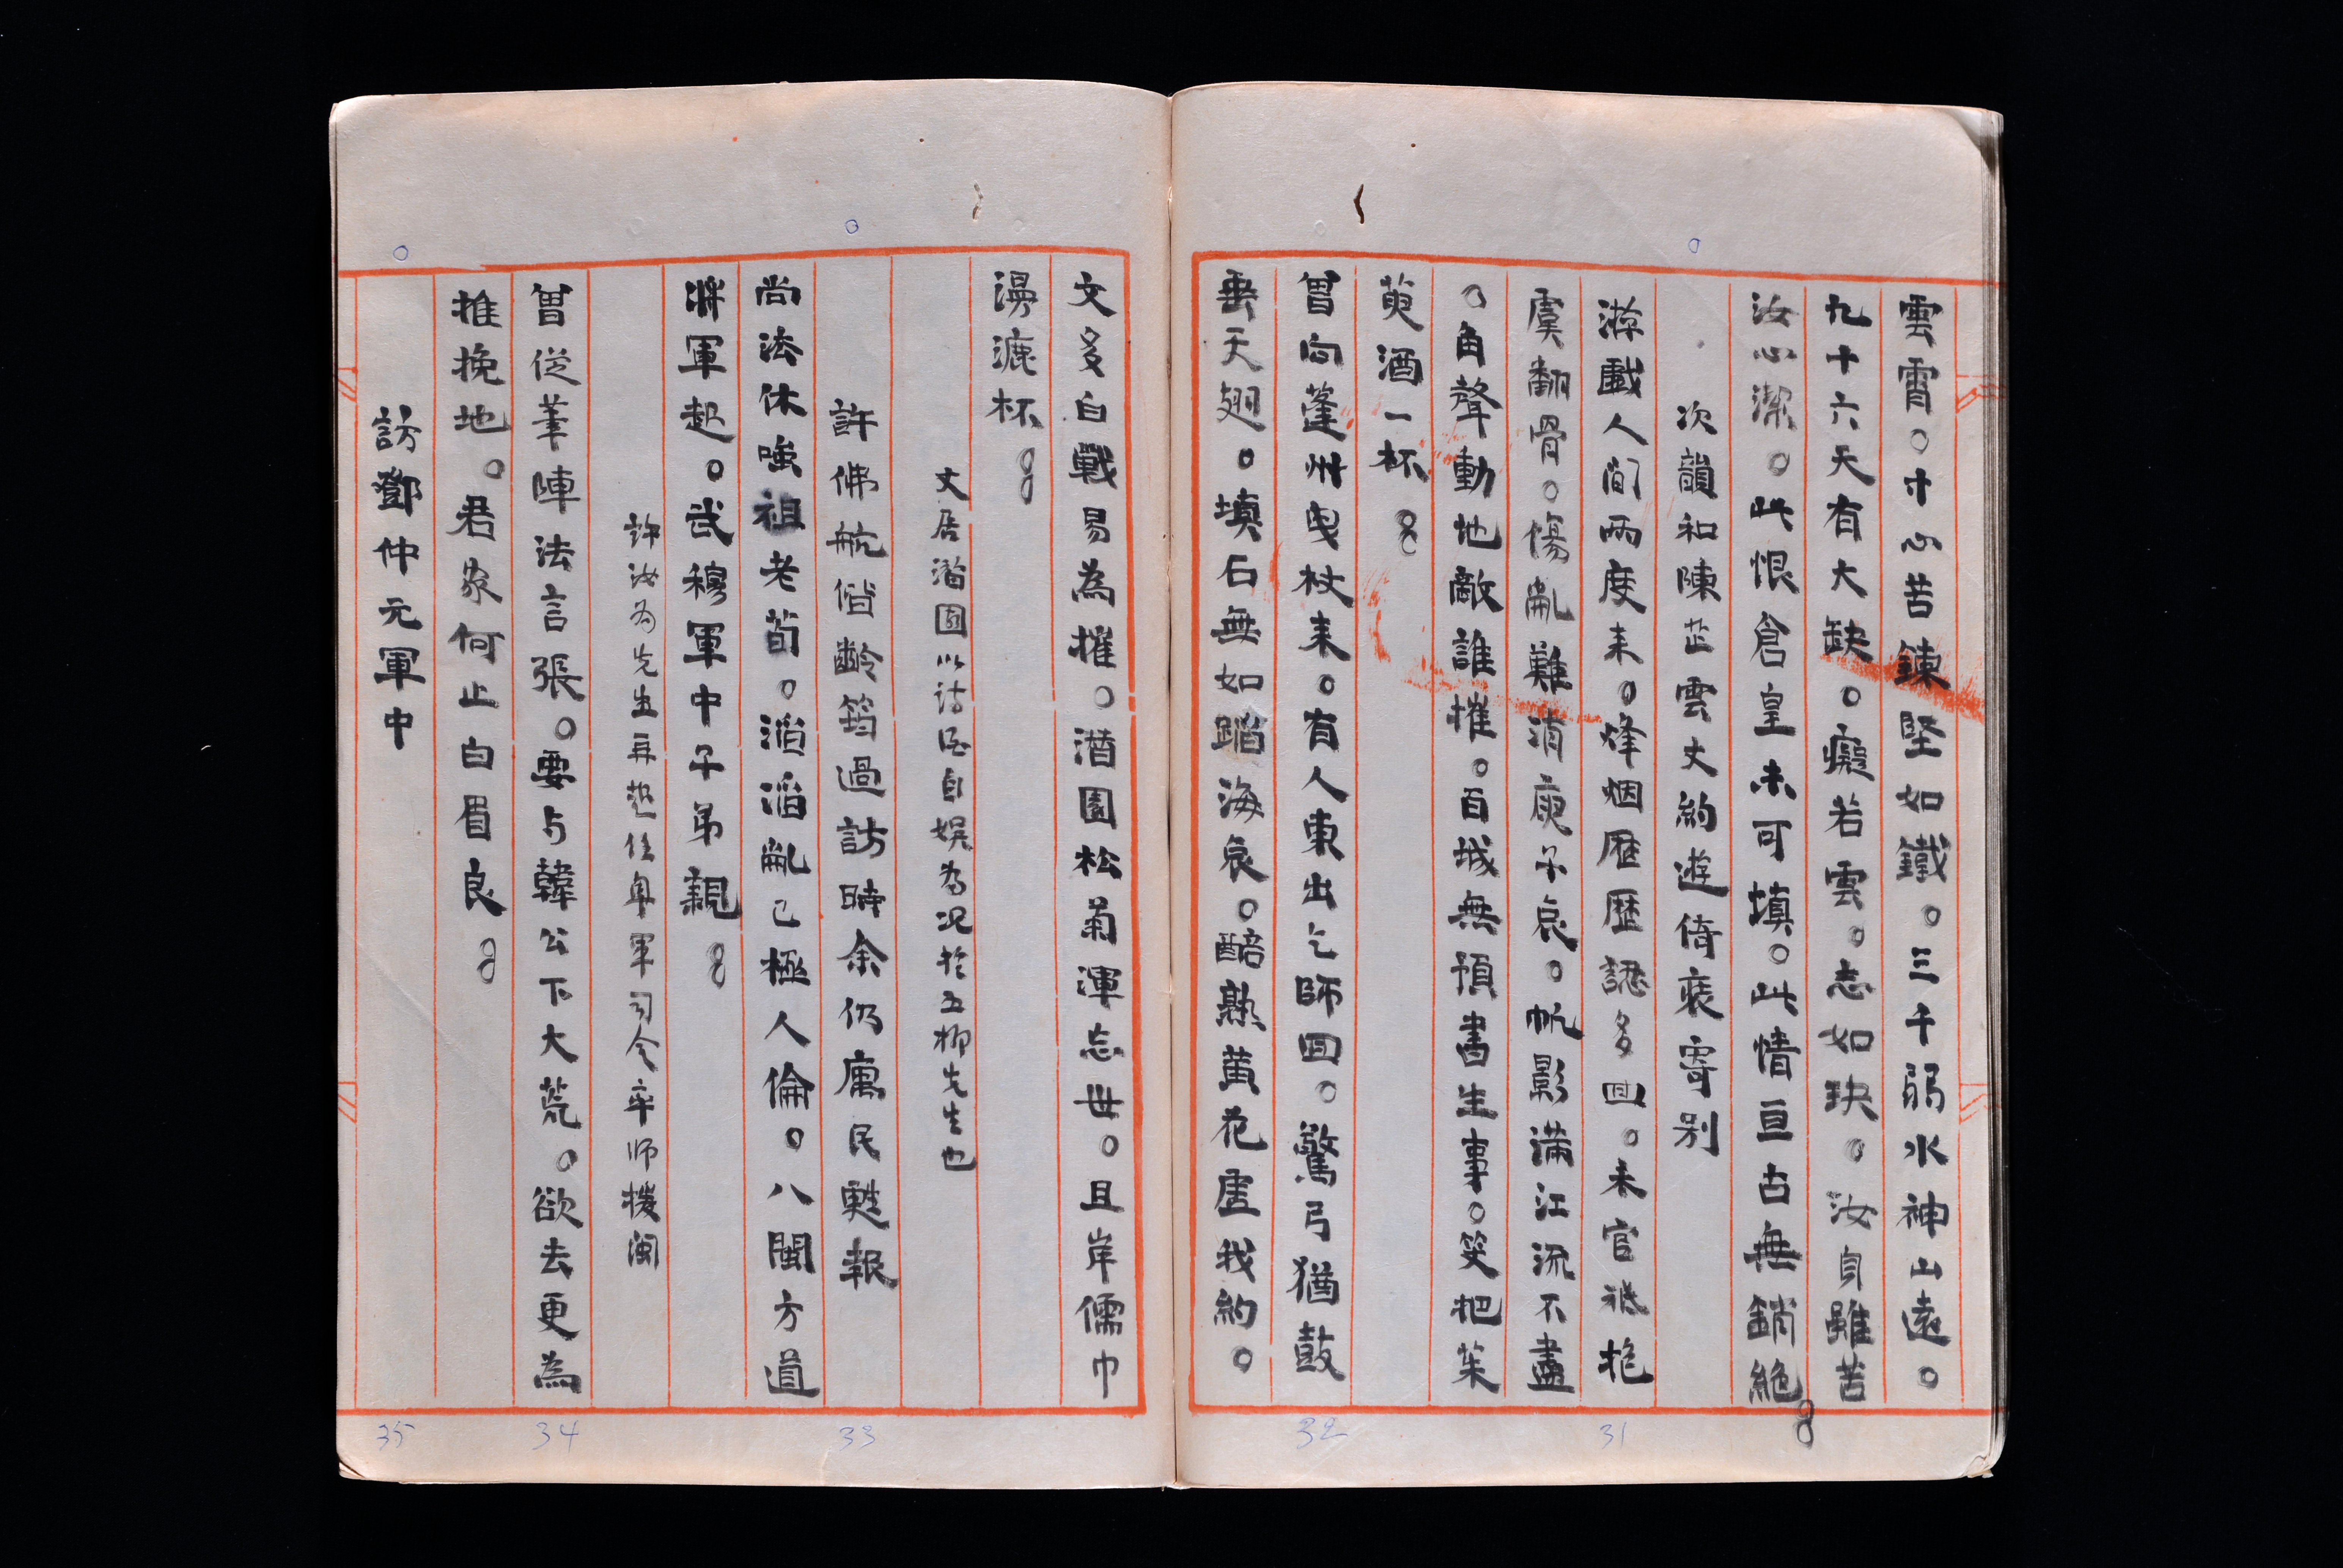 雲霄。寸心苦鍊堅如鐵。三千弱水神山遠。
九十六天有大缺。癡若雲。志如玦。汝身雖苦
汝心潔。此恨倉皇未可填。此情亘古無銷絶
次韻和陳芷雲丈約遊倚裝寄別
游戲人間兩度来。烽烟歷歷認多回。未官祗抱
虞翻骨。傷亂難消庾子哀。帆影滿江流不盡
。角聲動地敵誰摧。百城無預書生事。笑把茱
萸酒一杯
曾向蓬州曳杖来。有人東出乞師回。驚弓猶鼓
垂天翅。填石無如蹈海哀。醅熟黃花虛我約。
文多白戰易為摧。潛園松菊渾忘世。且岸儒巾
漫漉杯
丈居潛園以詩酒自娛為況於五柳先生也
許佛航偕齡筠過訪時余仍寓民甦報
尚法休嗤祖老荀。滔滔亂已極人倫。八閩方道
將軍起。武穆軍中子弟親
許汝為先生再起任身軍司令率師援閩
曾從筆陣法言張。要与韓公下大荒。欲去更為
推挽地。君家何止白眉良
訪鄧仲元軍中
31
32
33
34
35